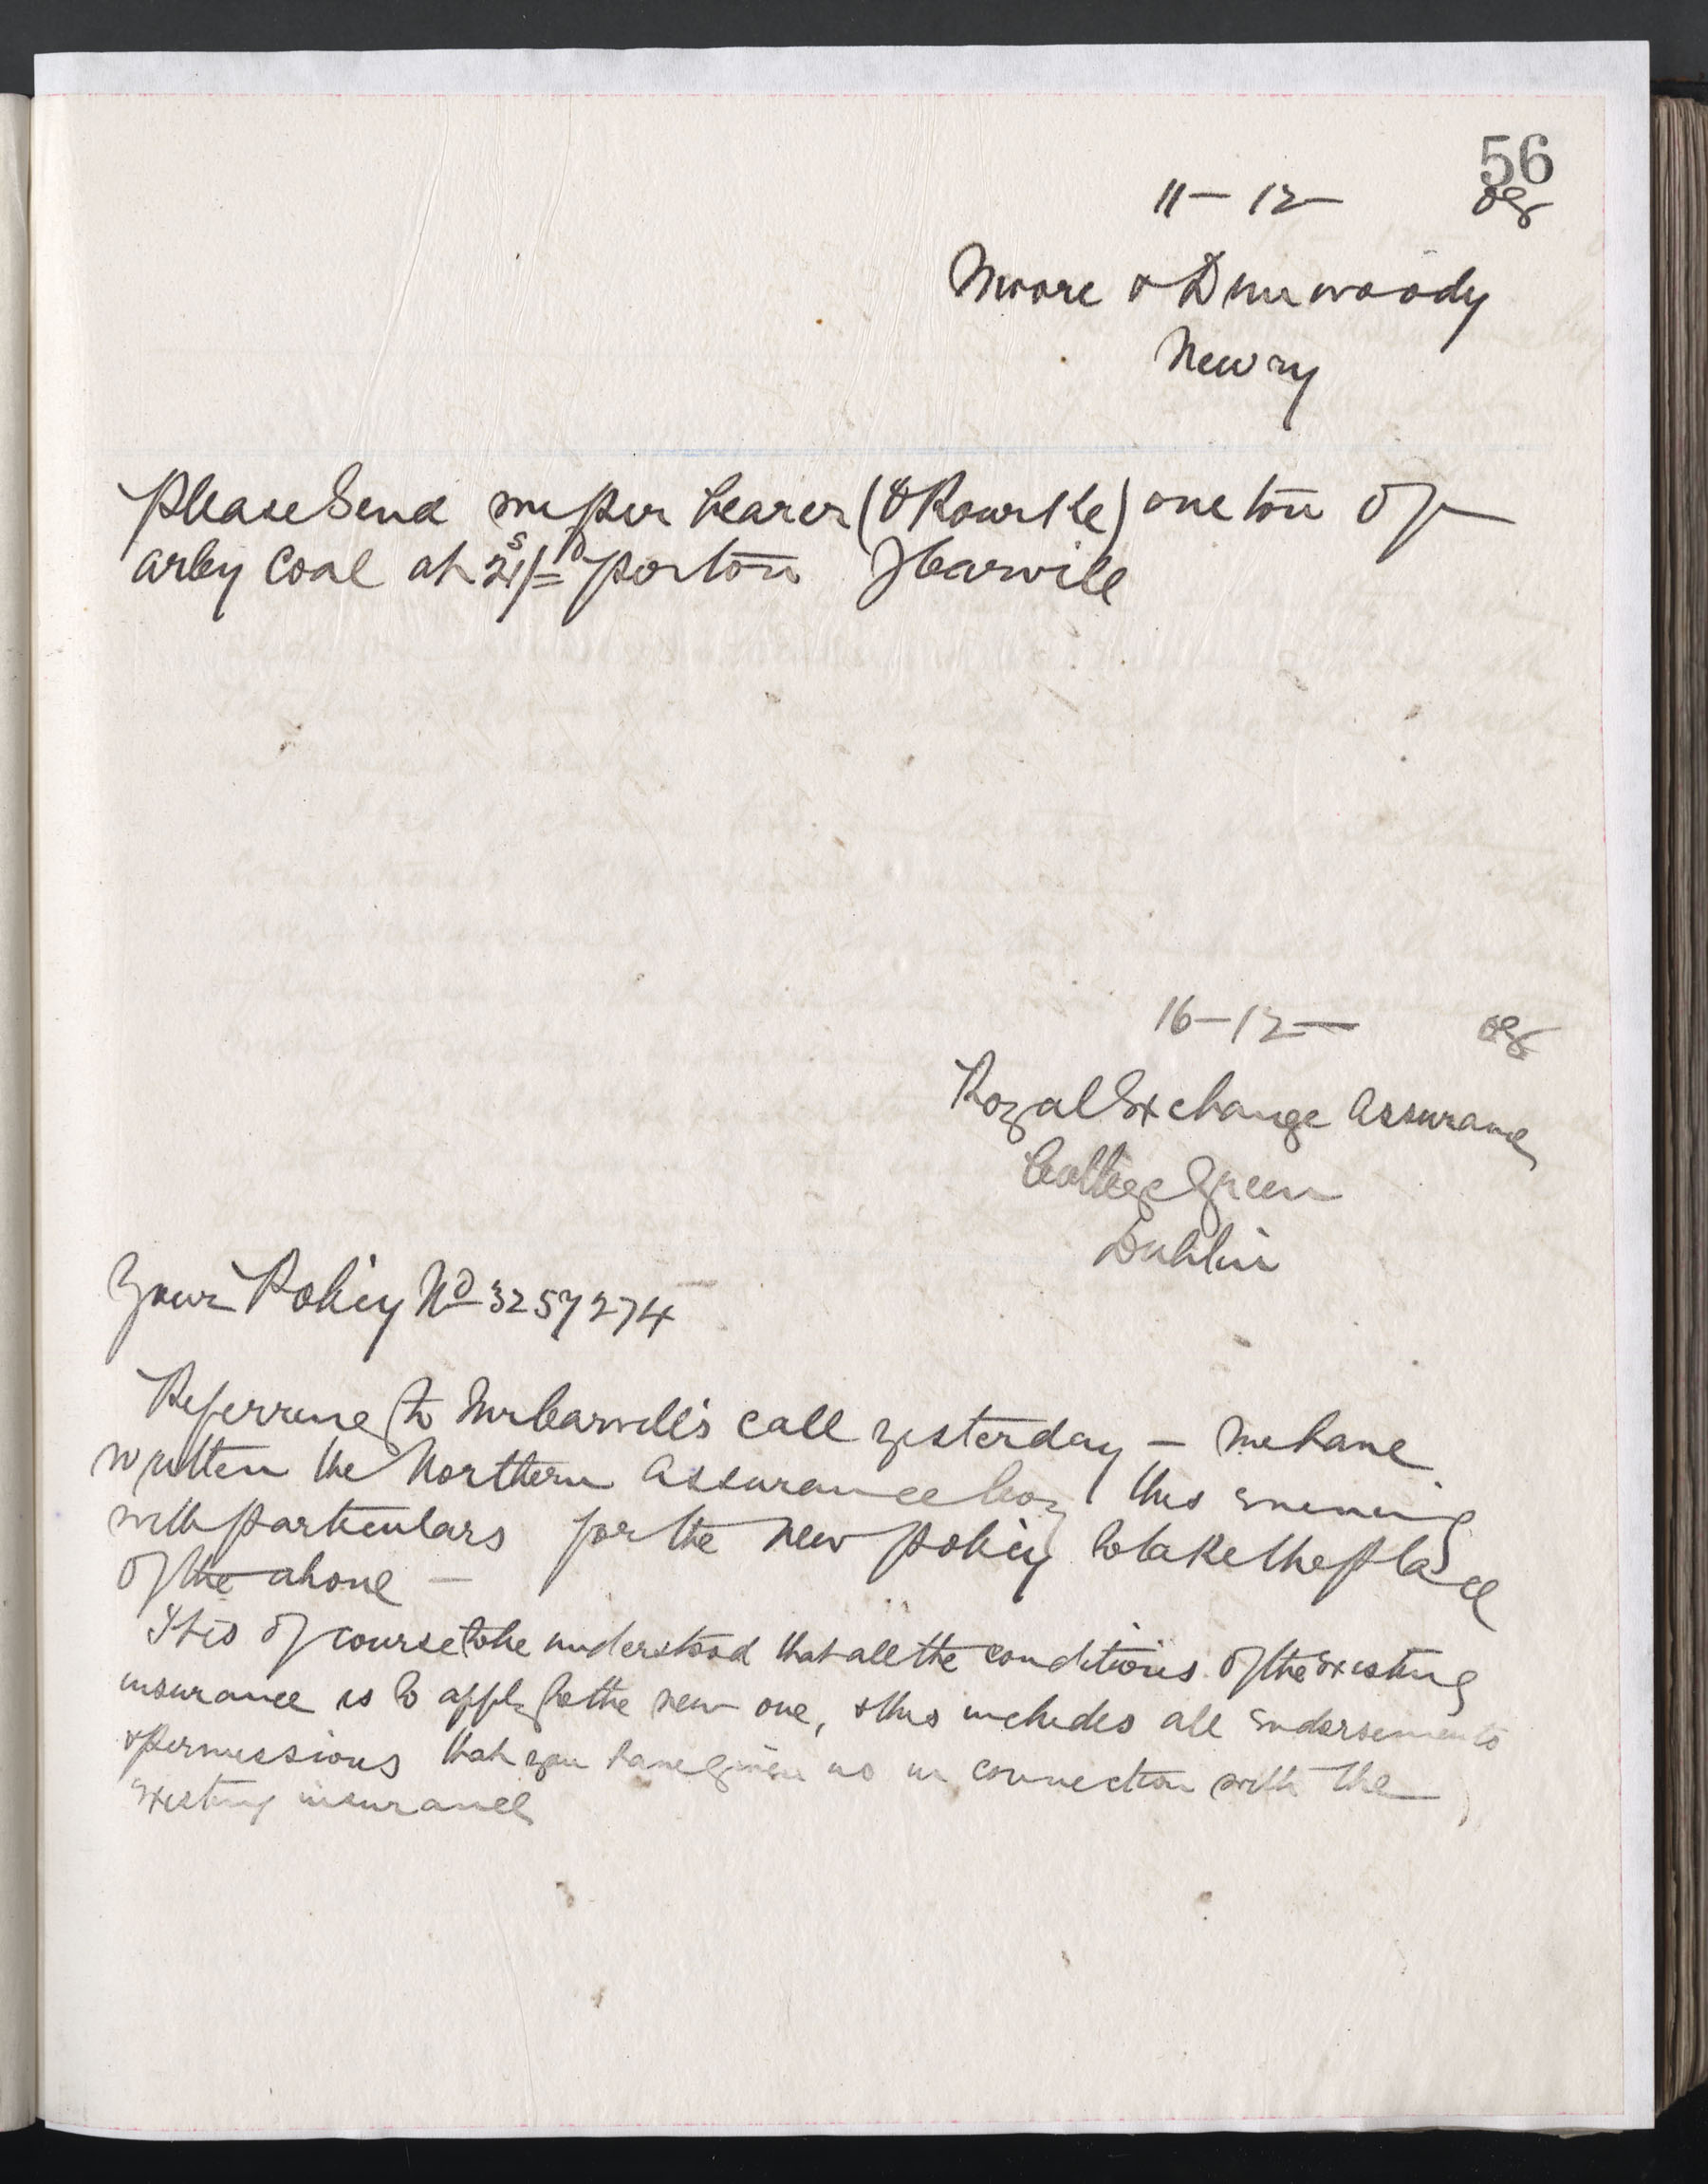 56
11 – 12 – 08
Moore & Dinwoody
Newry
Please Send me per bearer (O'Rourke) one ton of
arley Coal at 21s/=d per ton J Carvill
16 – 12 – 08
Royal Exchange Assurance
College Green
Dublin
Your Policy No 3257274
Referring to Mr Carvill's call yesterday – we have
written the Northern Assurance Coy this evening
with particulars for the new policy to take the place
of the above –
It is of course to be understood that all the conditions of the existing
insurance is to apply to the new one, & this includes all endorsements
& permissions that you have given us in connection with the
existing insurance